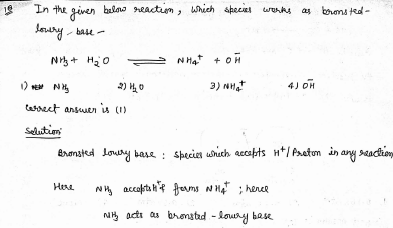 18 In the given below reaction, which species works as bronsted-
lowry-base -
NH₃ + H₂O ⇌ NH₄⁺ + OH⁻
1) NH₃ 2) H₂O 3) NH₄⁺ 4) OH⁻
Correct answer is (1)
Solution
Bronsted lowry base : species which accepts H⁺/Proton in any reaction
Here NH₃ accepts H⁺ & forms NH₄⁺ ; hence
NH₃ acts as bronsted-lowry base